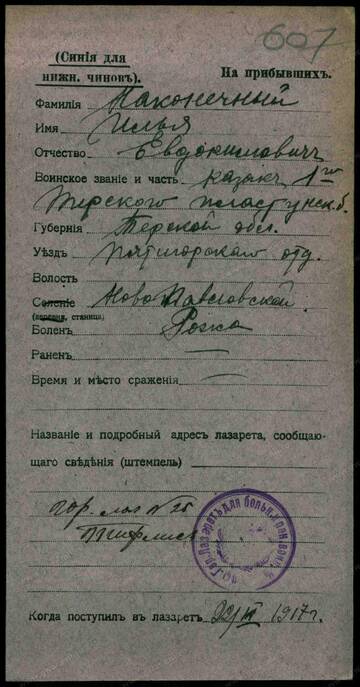 607
(Синія для
нижн. чиновъ).
На прибывшихъ.
Фамилія Маконечный
Имя Илья
Отчество Евдокимович
Воинское званіе и часть казакъ 1го
Терского пластунск. б.
Губернія Терской обл.
Уѣздъ Пятигорскаго отд.
Волость
Селеніе Ново Павловской
(деревня, станица)
Боленъ Рожа
Раненъ —
Время и мѣсто сраженія —
Названіе и подробный адресъ лазарета, сообщаю-
щаго свѣдѣнія (штемпель)
гор. лаз № 26
Тифлисъ
Лазаретъ для больн. и ран. воин.
Когда поступилъ въ лазаретъ 1917 г.